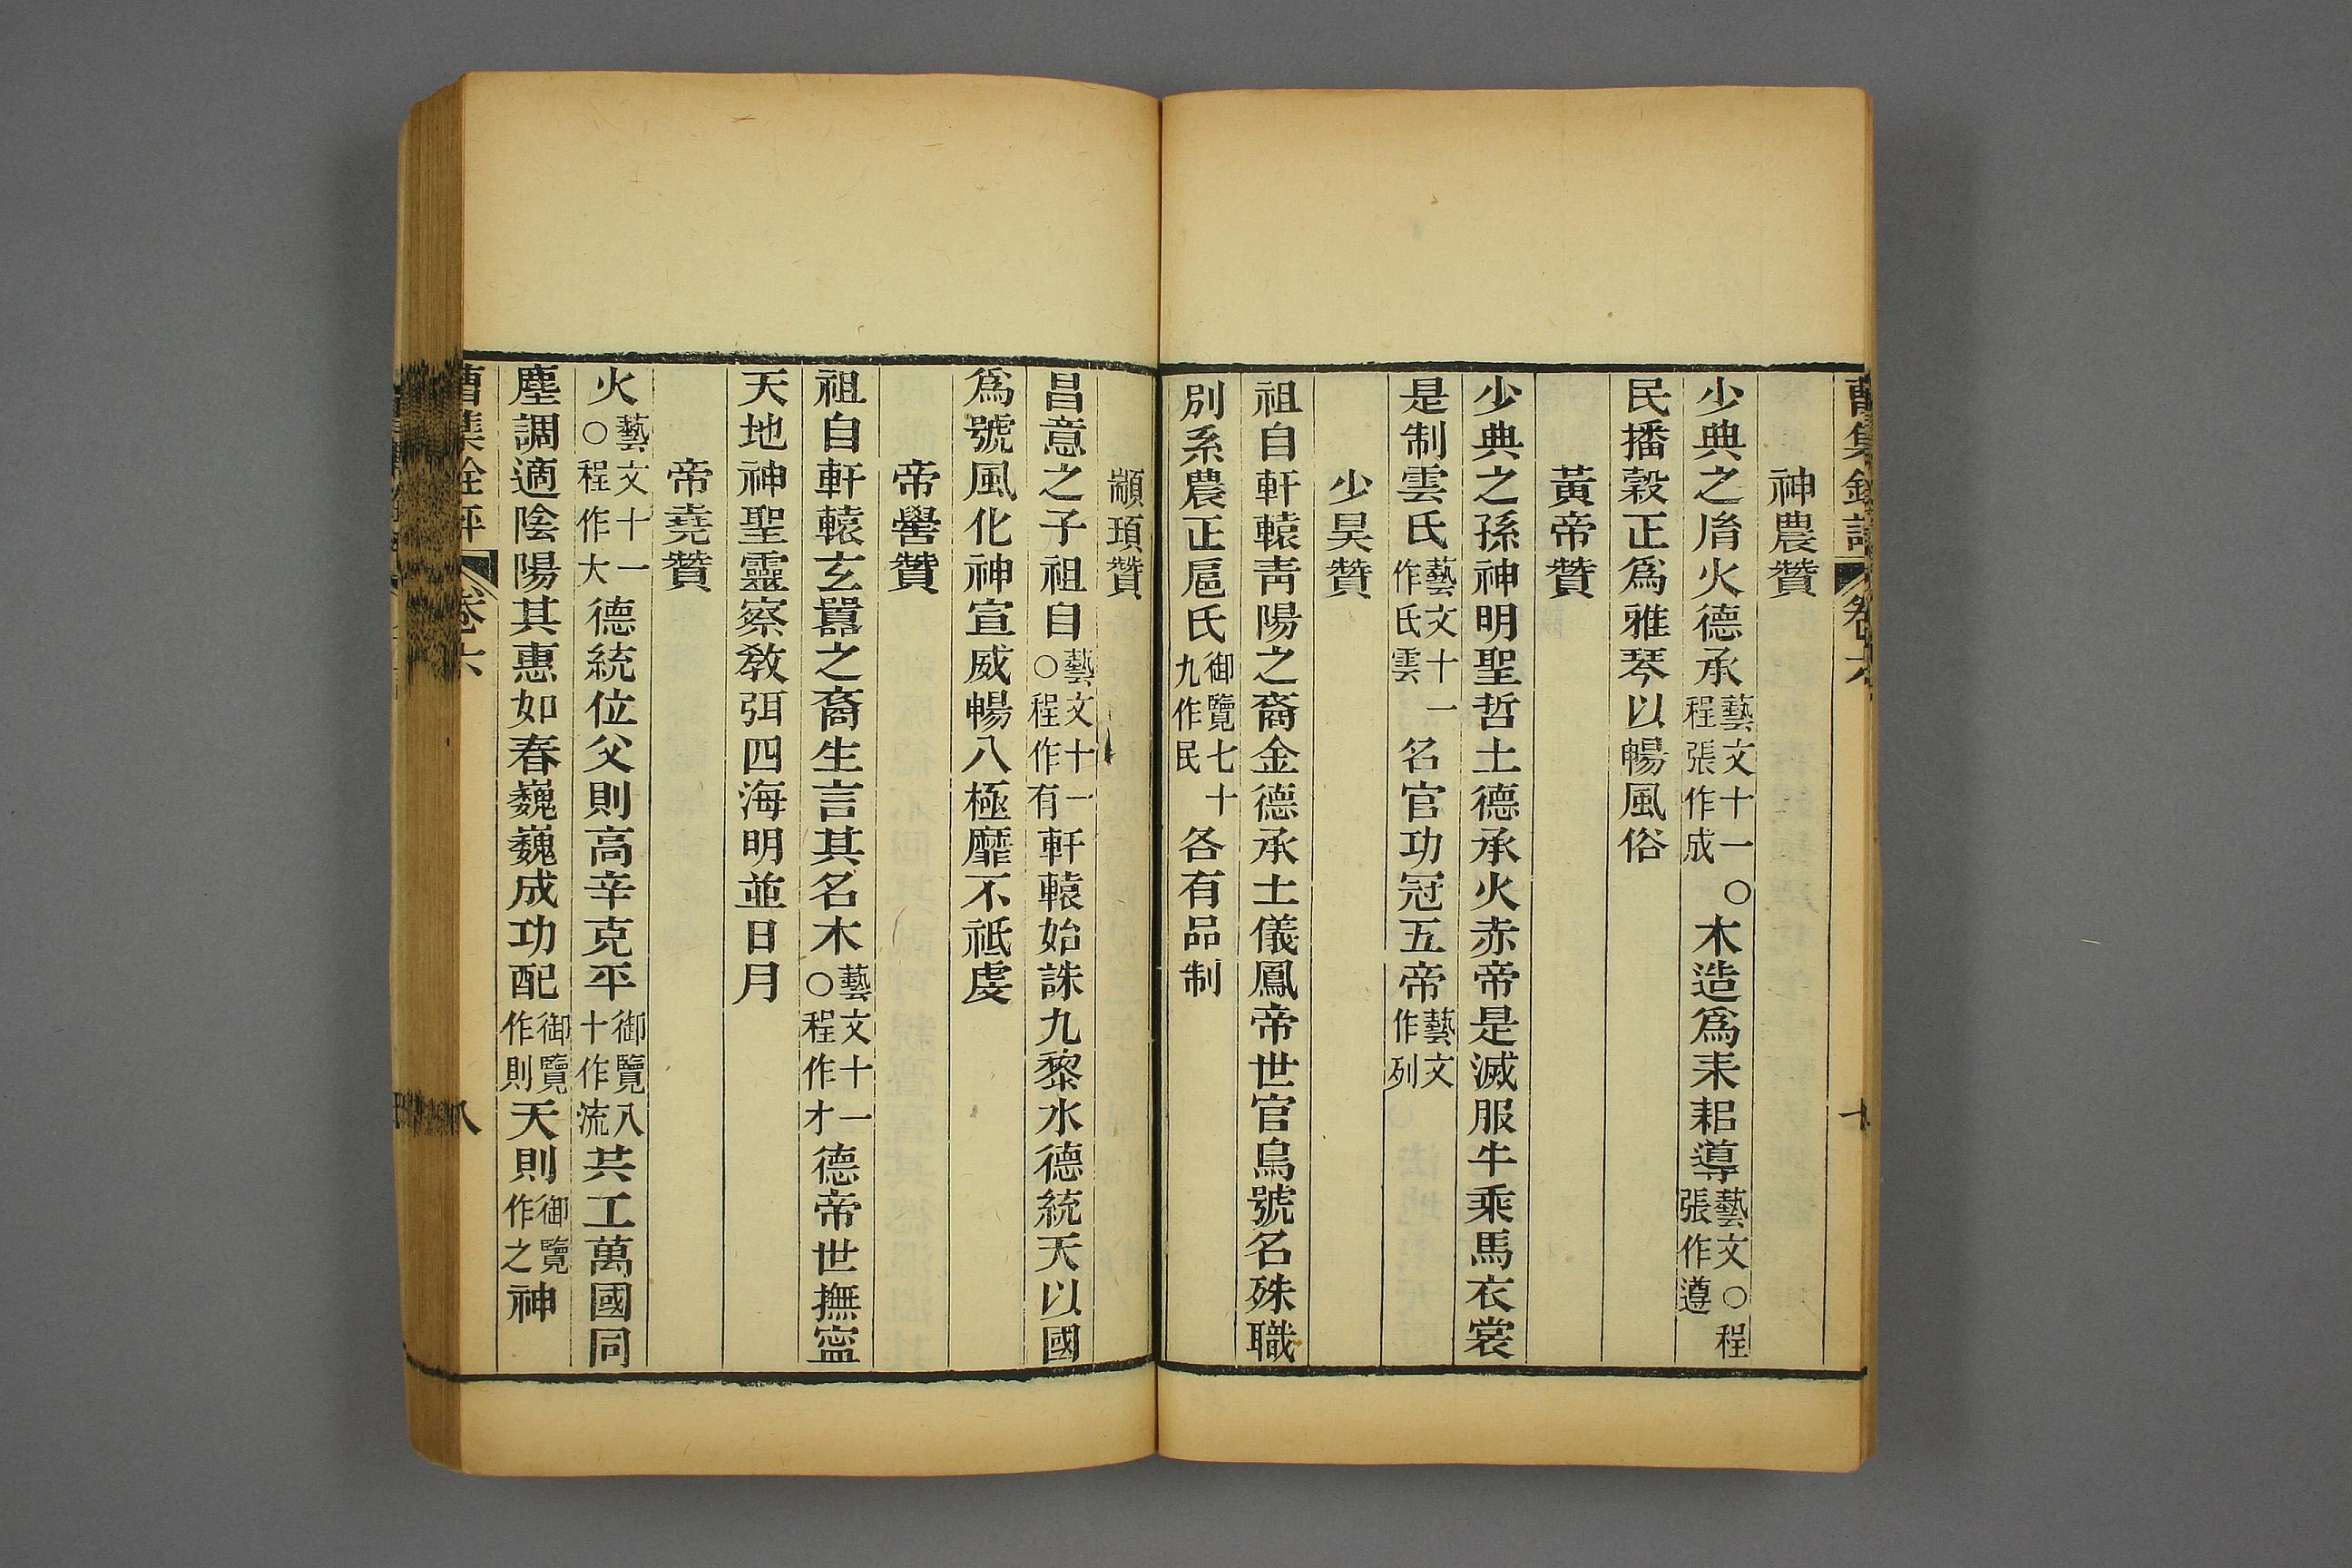 曹集銓評 卷六 七
神農贊
少典之胤火德承藝文十一○程張作成木造爲耒耜導藝文○程張作遵
民播穀正爲雅琴以暢風俗
黃帝贊
少典之孫神明聖哲土德承火赤帝是滅服牛乘馬衣裳
是制雲氏藝文十一作氏雲名官功冠五帝藝文作列
少昊贊
祖自軒轅靑陽之裔金德承土儀鳳帝世官鳥號名殊職
別系農正扈氏御覽七十九作民各有品制
顓頊贊
昌意之子祖自藝文十一○程作有軒轅始誅九黎水德統天以國
爲號風化神宣威暢八極靡不祗虔
帝嚳贊
祖自軒轅玄囂之裔生言其名木藝文十一○程作才德帝世撫寧
天地神聖靈察敎弭四海明並日月
帝堯贊
火藝文十一○程作大德統位父則高辛克平御覽八十作流共工萬國同
塵調適陰陽其惠如春巍巍成功配御覽作則天則御覽作之神
曹集銓評 卷六 八